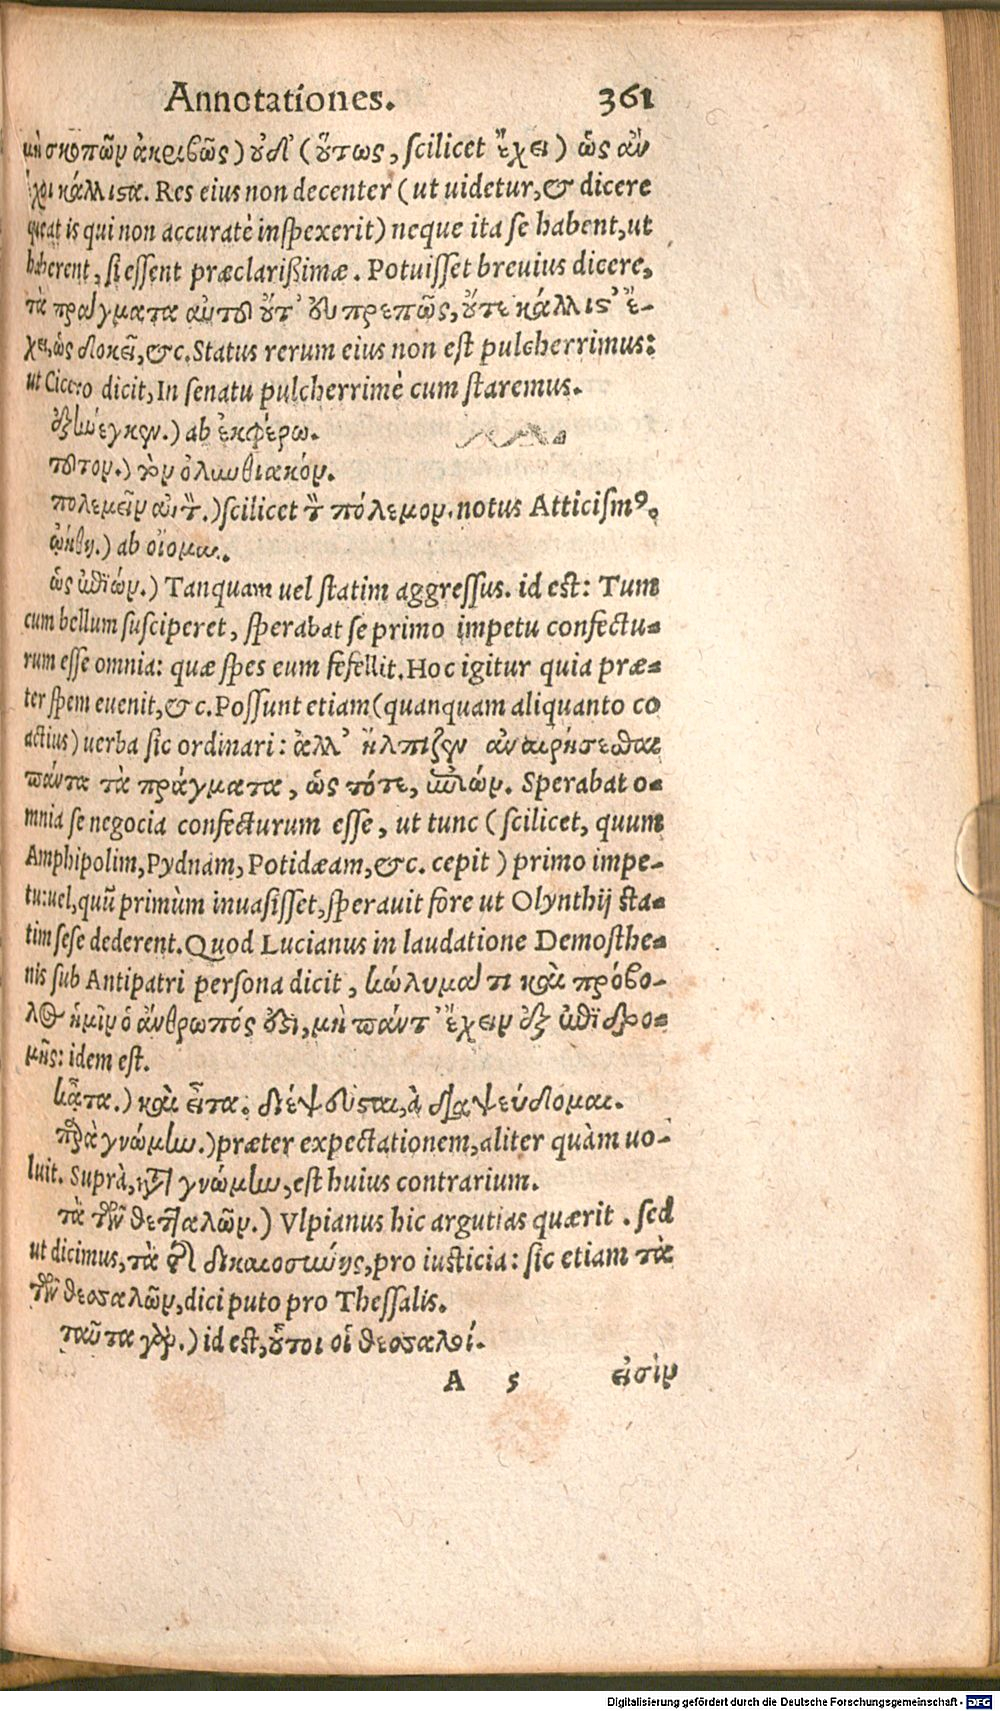 Annotationes. 361
μὴ σκοπῶν ἀκριβῶς) οὐδ' (οὕτως, scilicet ἔχει) ὡς ἂν
ἔχοι κάλλιστα. Res eius non decenter (ut uidetur, & dicere
queat is qui non accuratè inspexerit) neque ita se habent, ut
haberent, si essent præclarißimæ. Potuisset breuius dicere,
τὰ πράγματα αὐτοῦ οὔτ' εὐπρεπῶς, οὔτε κάλλιστ' ἔ-
χει, ὡς δοκεῖ, &c. Status rerum eius non est pulcherrimus:
ut Cicero dicit, In senatu pulcherrimè cum staremus.
ἐξήνεγκεν.) ab ἐκφέρω.
τοῦτον.) τὸν ὀλυνθιακόν.
πολεμεῖν αὐτὸν.) scilicet τὸν πόλεμον. notus Atticismꝰ.
ᾠήθη.) ab οἴομαι.
ὡς ἐπιών.) Tanquam uel statim aggressus. id est: Tum
cum bellum susciperet, sperabat se primo impetu confectu-
rum esse omnia: quæ spes eum fefellit. Hoc igitur quia præ-
ter spem euenit, &c. Possunt etiam (quanquam aliquanto co
actius) uerba sic ordinari: ἀλλ' ἤλπιζεν ἀναιρήσεσθαι
πάντα τὰ πράγματα, ὡς τότε, ἐπιών. Sperabat o-
mnia se negocia confecturum esse, ut tunc (scilicet, quum
Amphipolim, Pydnam, Potidæam, &c. cepit) primo impe-
tu: uel, quũ primùm inuasisset, sperauit fore ut Olynthij sta-
tim sese dederent. Quod Lucianus in laudatione Demosthe-
nis sub Antipatri persona dicit, κώλυμά τι καὶ πρόβο-
λος ἡμῖν ὁ ἄνθρωπός ἐστι, μὴ πάντ' ἔχειν ἐξ ἐπιδρο-
μῆς: idem est.
κᾆτα.) καὶ εἶτα. διέψευσται, à διαψεύδομαι.
παρὰ γνώμην.) præter expectationem, aliter quàm uo-
luit. Suprà, κατὰ γνώμην, est huius contrarium.
τὰ τῶν θετταλῶν.) Vlpianus hic argutias quærit. sed
ut dicimus, τὰ τῆς δικαιοσύνης, pro iusticia: sic etiam τὰ
τῶν θεσσαλῶν, dici puto pro Thessalis.
ταῦτα γὰρ.) id est, οὗτοι οἱ θεσσαλοί.
A 5 εἰσὶν
Digitalisierung gefördert durch die Deutsche Forschungsgemeinschaft - DFG